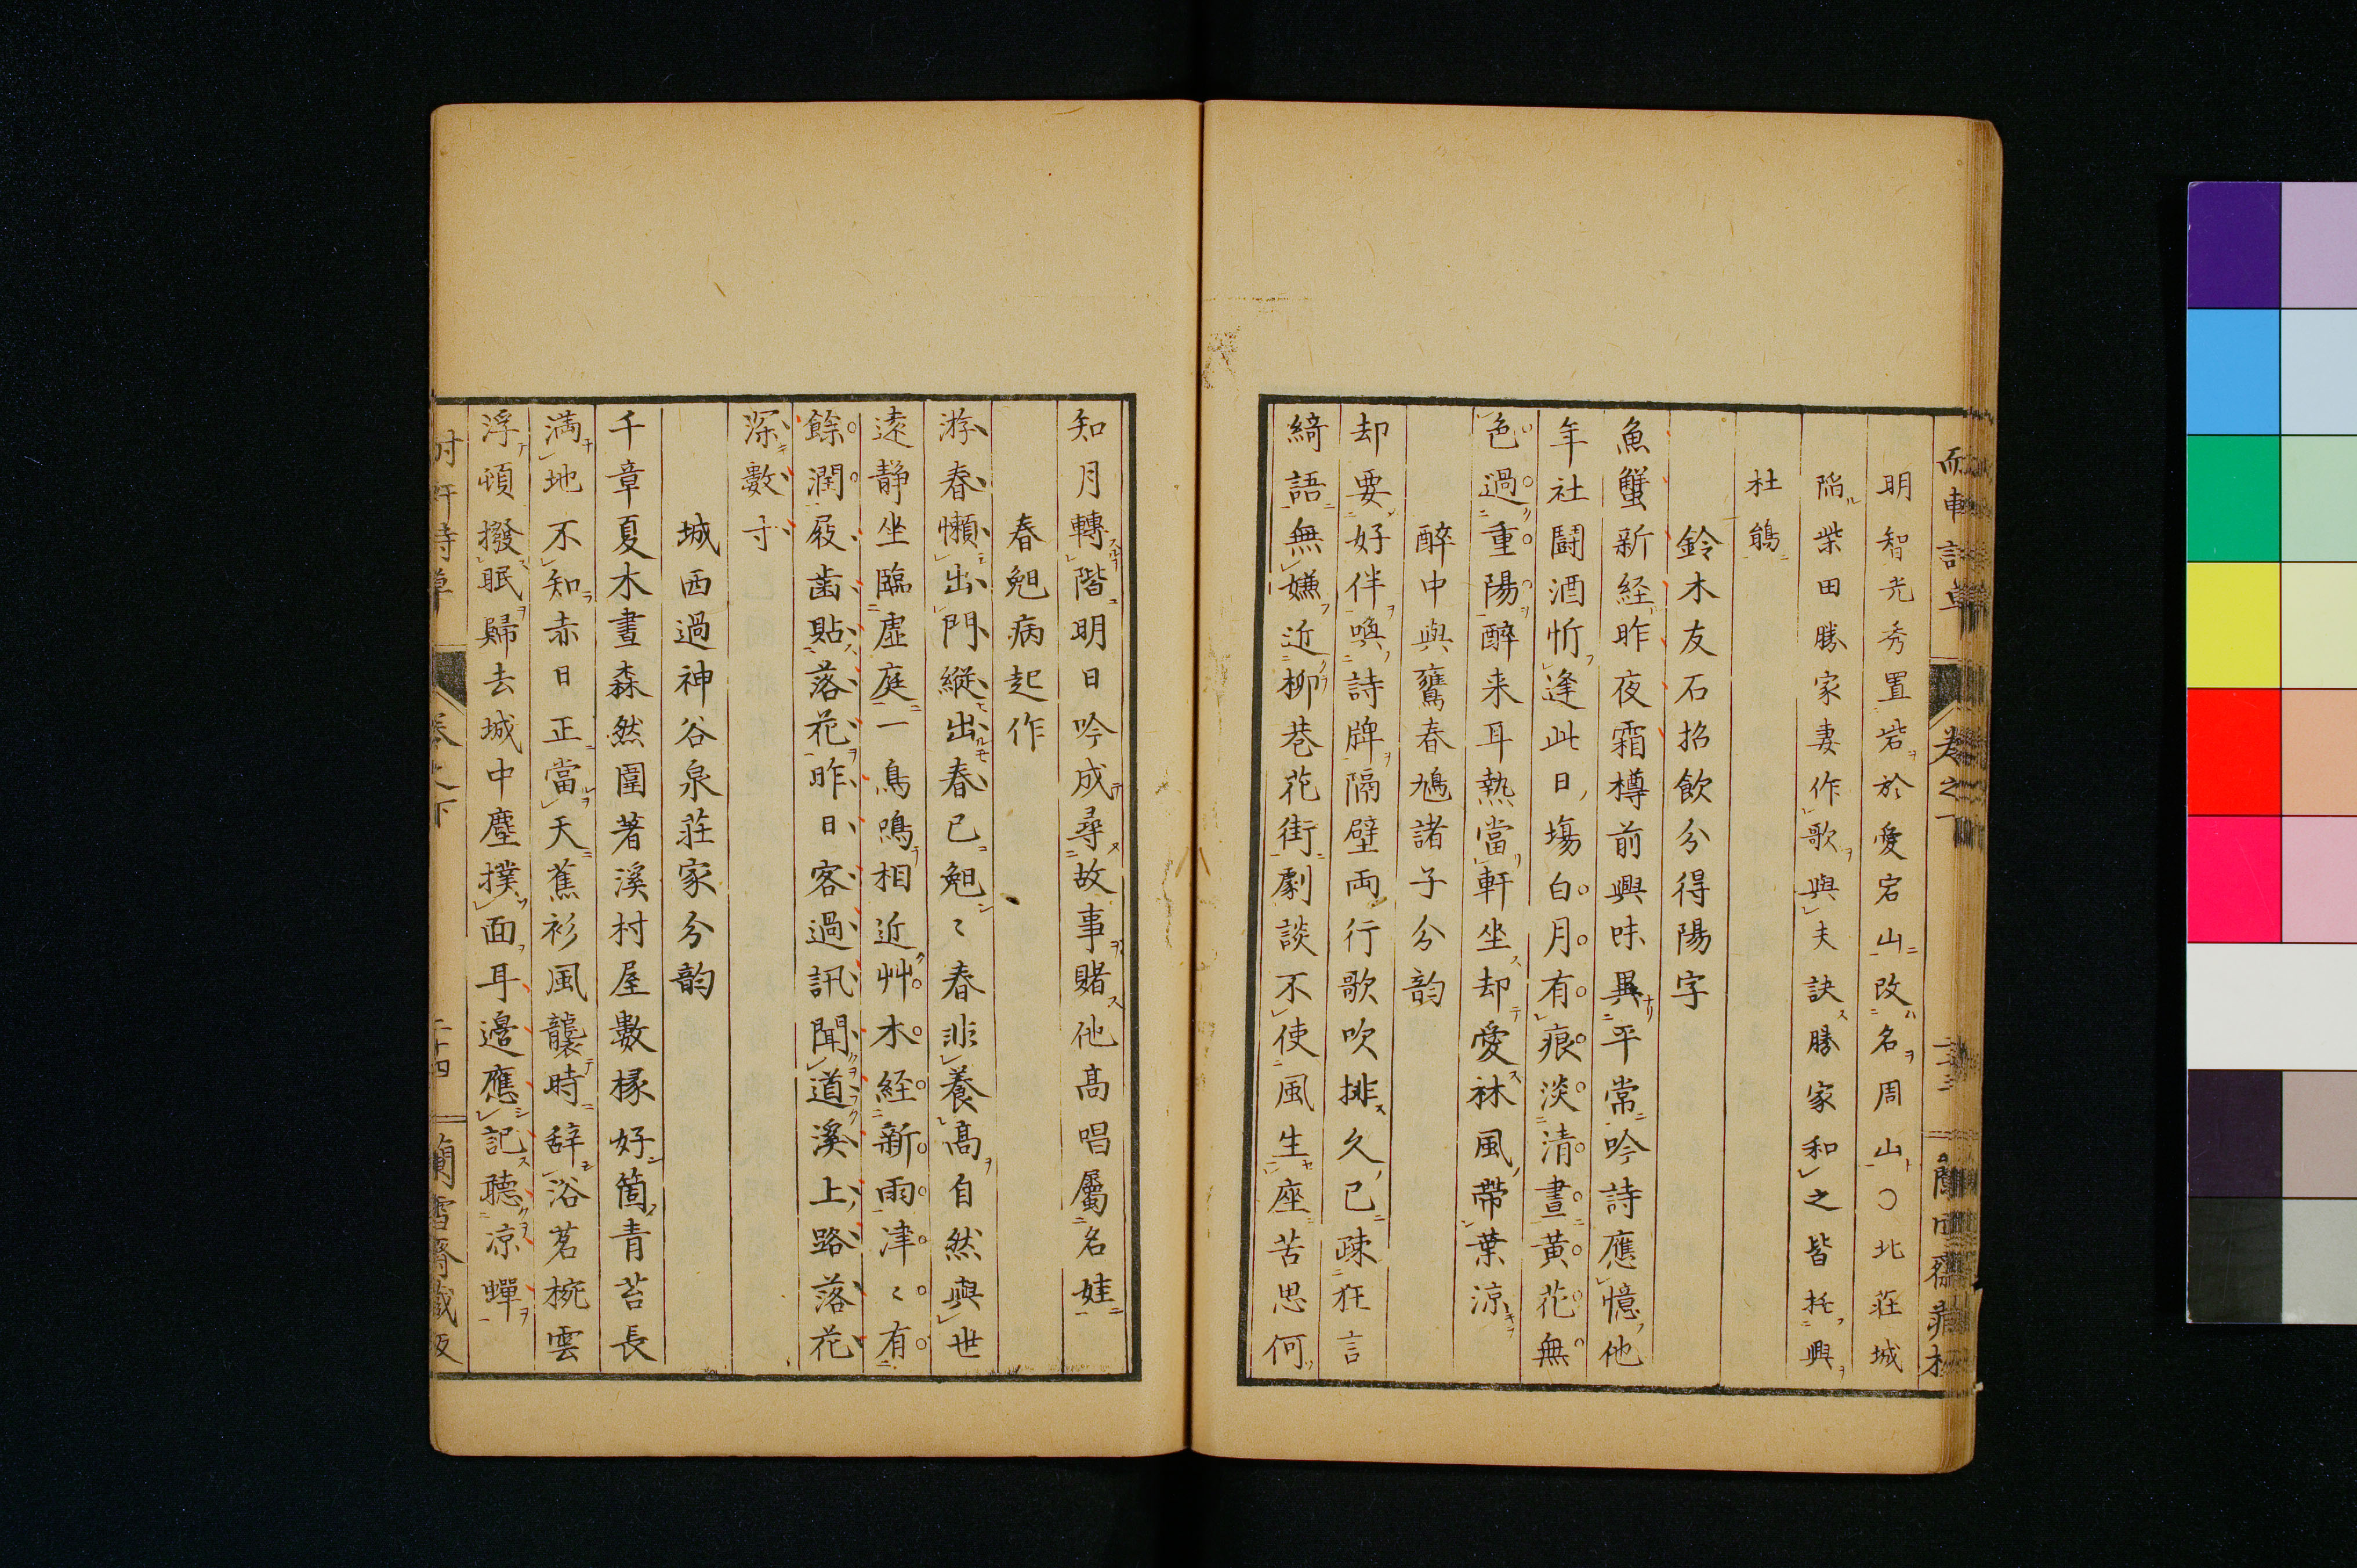 明智光秀置砦於愛宕山改名周山〇北荘城
陥柴田勝家妻作歌與夫訣勝家和之皆托興
杜鵑
鈴木友石招飲分得陽字
魚蟹新経昨夜霜樽前興味異平常吟詩應憶他
年社鬪酒忻逢此日塲白月有痕淡清晝黄花無
色過重陽醉来耳熱當軒坐却愛袜風帶葉涼
醉中與鷰春鳩諸子分韵
却要好伴喚詩牌隔壁両行歌吹排久已疎狂言
綺語無嫌近柳巷花街劇談不使風生座苦思何
知月轉階明日吟成尋故事賭他高唱屬名娃
春兔病起作
游春懶出門縦出春已兔〻春非養高自然與世
遠静坐臨虚庭一鳥鳴相近艸木経新雨津〻有
餘潤屐歯貼落花昨日客過訊聞道溪上路落花
深數寸
城西過神谷泉荘家分韵
千章夏木晝森然圍著溪村屋數椽好箇青苔長
満地不知赤日正當天蕉衫風襲時辞浴茗椀雲
浮頓撥眠歸去城中塵撲面耳邊應記聴凉蟬
巻之下
二十四
蘭雪齋藏板